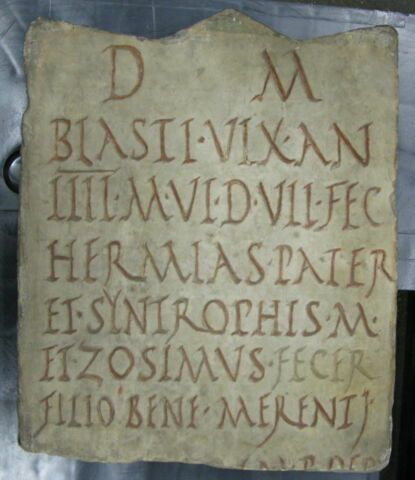 D M
BLASTI·VIX·AN
IIII·M·VI·D·VII·FEC
HERMIAS·PATER
ET·SYNTROPHIS·M·
ET·ZOSIMVS·FECER
FILIO BENE·MERENTI